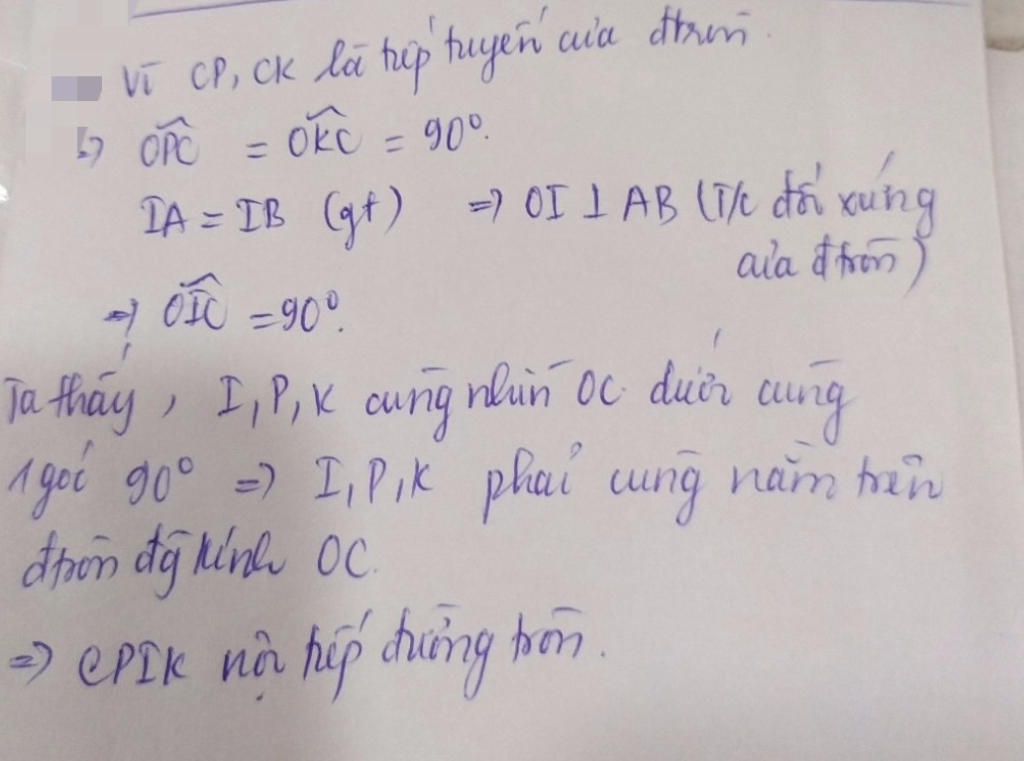 Vì CP, CK là tiếp tuyến của đtròn.
=> OPC = OKC = 90°.
IA = IB (gt) => OI ⊥ AB (T/c đối xứng
của đtròn)
=> OIC = 90°.
Ta thấy, I, P, K cùng nhìn OC dưới cùng
1 góc 90° => I, P, K phải cùng nằm trên
đtròn đg kính OC.
=> CPIK nội tiếp đường tròn.